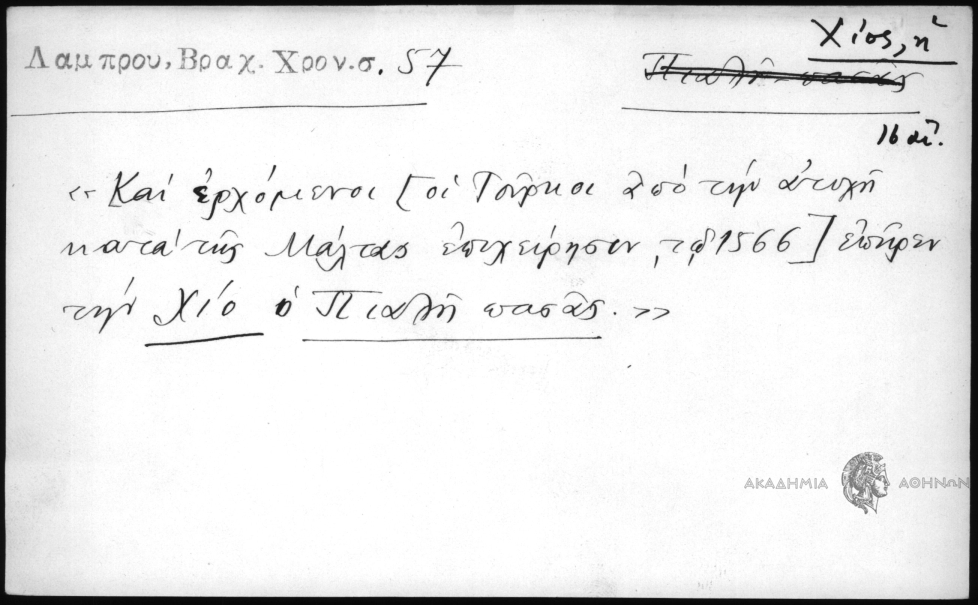 Λαμπρου, Βραχ. Χρον. σ. 57
Χίος, ἡ
Πιαλῆ πασᾶς
16 αἰ.
«Καί ἐρχόμενοι [οἱ Τοῦρκοι ἀπό τήν ἀτυχῆ
κατά τῆς Μάλτας ἐπιχείρησιν, τῷ 1566] ἐπῆρεν
τήν Χίο ὁ Πιαλῆ πασᾶς.»
ΑΚΑΔΗΜΙΑ ΑΘΗΝΩΝ